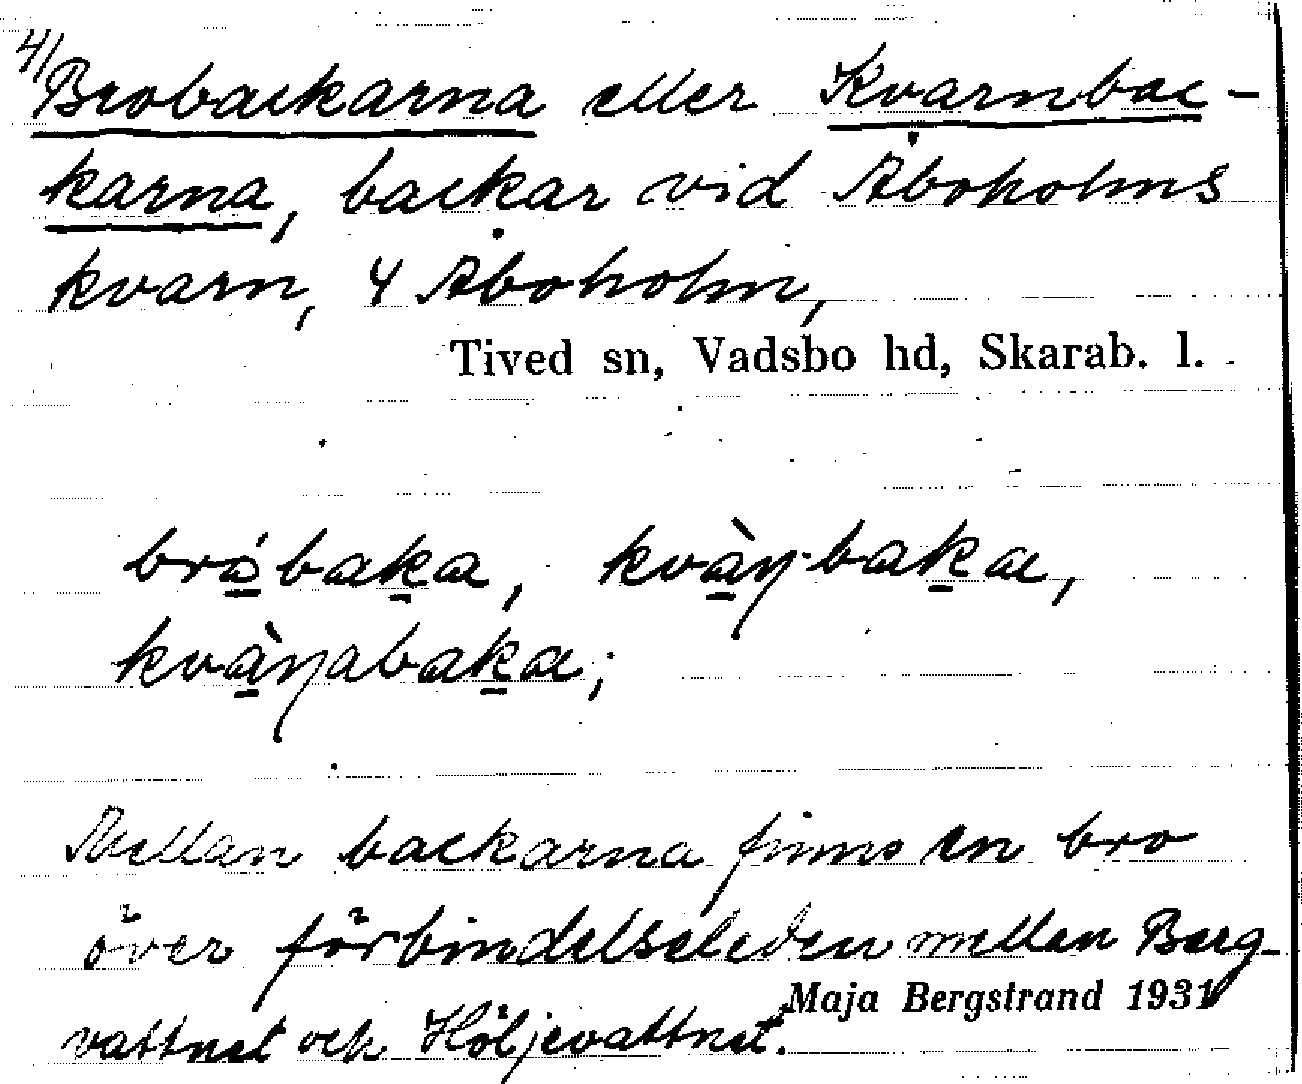 4/
Brobackarna eller Kvarnbac-
karna, backar vid Åboholms
kvarn, 4 Åboholm,
Tived sn, Vadsbo hd, Skarab. l.
bróbaka, kvàŋbaka,
kvàŋabaka;
Mellan backarna finns en bro
över förbindelseleden mellan Berg-
vattnet och Höljevattnet.
Maja Bergstrand 1931